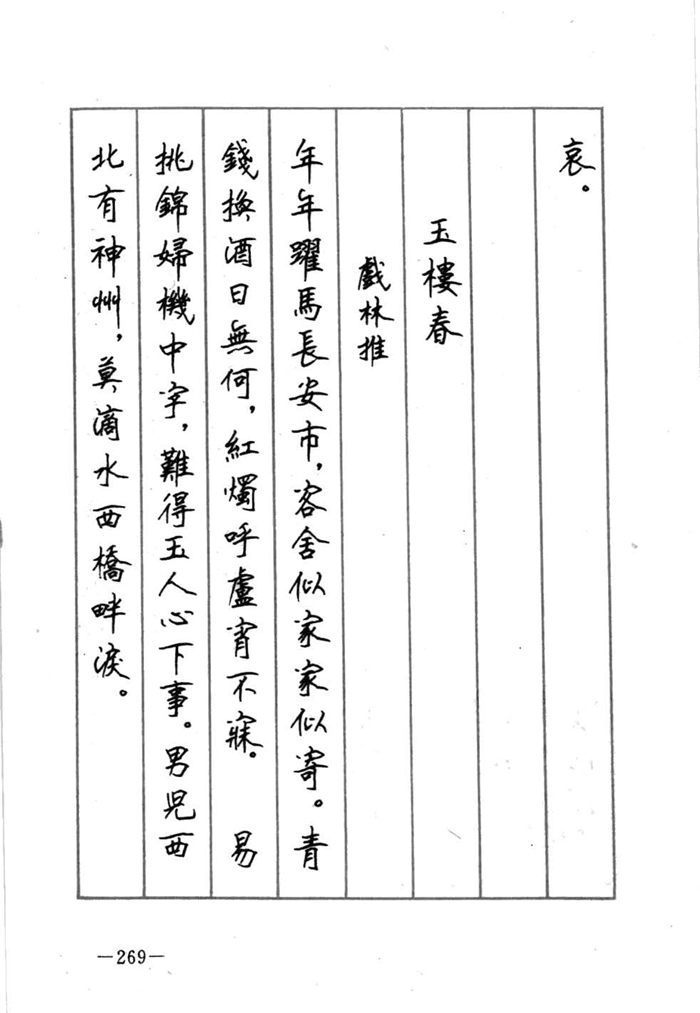 哀。
玉樓春
戲林推
年年躍馬長安市，客舍似家家似寄。青
錢換酒日無何，紅燭呼盧宵不寐。　易
挑錦婦機中字，難得玉人心下事。男兒西
北有神州，莫滴水西橋畔淚。
—269—